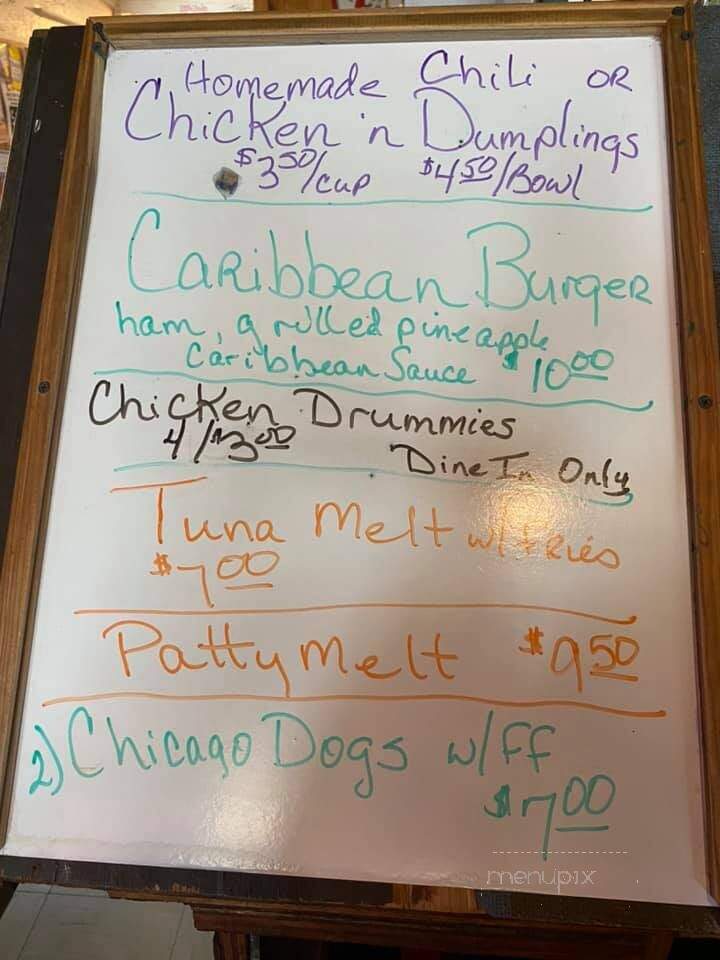 Homemade Chili OR
Chicken 'n Dumplings
$3.50/cup $4.50/Bowl
Caribbean Burger
ham, grilled pineapple
Caribbean Sauce $10.00
Chicken Drummies
4/$3.00 Dine In Only
Tuna Melt w/fries
$7.00
Patty Melt $9.50
2) Chicago Dogs w/ff
$7.00
menupix